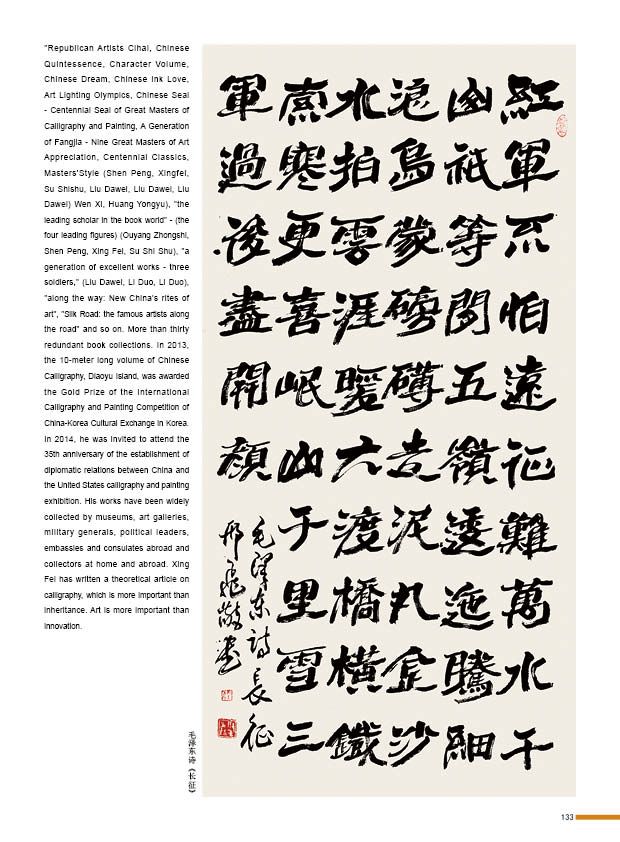 "Republican Artists Cihai, Chinese
Quintessence, Character Volume,
Chinese Dream, Chinese Ink Love,
Art Lighting Olympics, Chinese Seal
- Centennial Seal of Great Masters of
Calligraphy and Painting, A Generation
of Fangjia - Nine Great Masters of Art
Appreciation, Centennial Classics,
Masters'Style (Shen Peng, Xingfei,
Su Shishu, Liu Dawei, Liu Dawei, Liu
Dawei) Wen Xi, Huang Yongyu), "the
leading scholar in the book world" - (the
four leading figures) (Ouyang Zhongshi,
Shen Peng, Xing Fei, Su Shi Shu), "a
generation of excellent works - three
soldiers," (Liu Dawei, Li Duo, Li Duo),
"along the way: New China's rites of
art", "Silk Road: the famous artists along
the road" and so on. More than thirty
redundant book collections. In 2013,
the 10-meter long volume of Chinese
Calligraphy, Diaoyu Island, was awarded
the Gold Prize of the International
Calligraphy and Painting Competition of
China-Korea Cultural Exchange in Korea.
In 2014, he was invited to attend the
35th anniversary of the establishment of
diplomatic relations between China and
the United States calligraphy and painting
exhibition. His works have been widely
collected by museums, art galleries,
military generals, political leaders,
embassies and consulates abroad and
collectors at home and abroad. Xing
Fei has written a theoretical article on
calligraphy, which is more important than
inheritance. Art is more important than
innovation.
紅軍不怕遠征難萬水千
山祇等閑五嶺逶迤騰細
浪烏蒙磅礴走泥丸金沙
水拍雲涯暖大渡橋橫鐵
索寒更喜岷山千里雪三
軍過後盡開顏
毛澤東詩長征
邢飛敬書
毛泽东诗《长征》
133